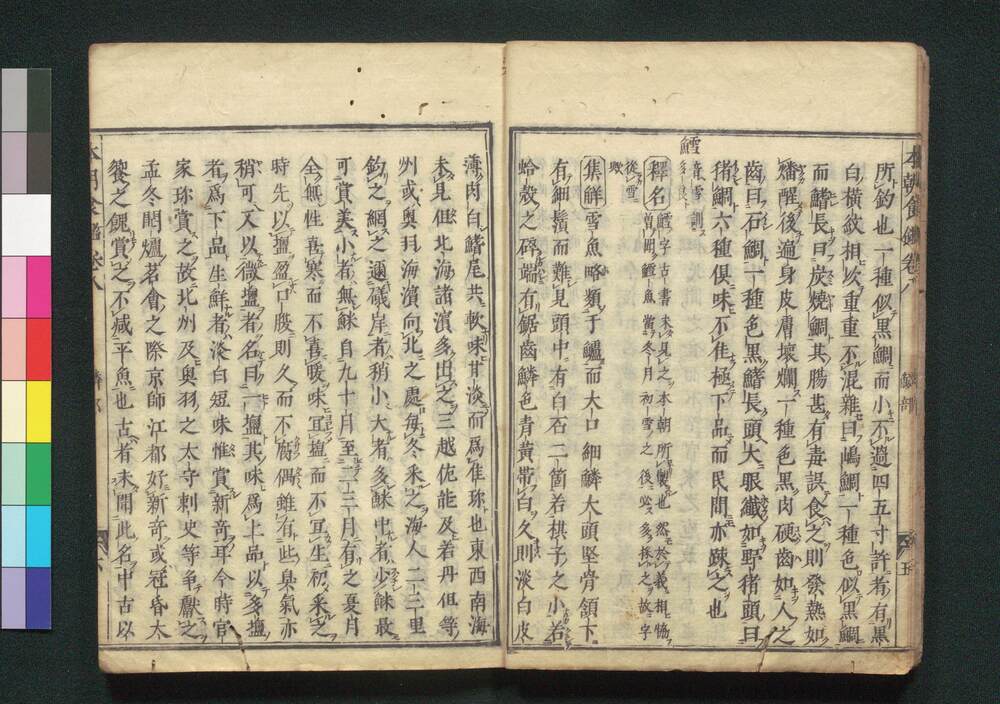 所釣也一種似黒鯛而小不過四五寸許者有黒
白橫紋相次重重不混雜曰嶋鯛一種色似黒鯛
而鰭長曰炭燒鯛其腸甚有毒誤食之則發熱如
燔醒後遍身皮膚壞爛一種色黒肉硬齒如人之
齒曰石鯛一種色黒鰭長頭大眼纎如野猪頭曰
猪鯛六種俱味不佳極下品而民間亦踈之也
鱈 音雪訓多良
釋名 鱈字古書未見之本朝所製也然於義相協
曽
呵鱈魚當冬月初雪之後必多採之故字
後雪
歟
集解 雪魚略類于鱸而大口細鱗大頭堅骨頷下
有細鬚而難見頭中有白石二箇若棋子之小若
蛤殼之碎端有鋸齒鱗色青黃帶白久則淡白皮
薄肉白鰭尾共軟味甘淡而爲佳珍也東西南海
未見但北海諸濱多出之三越佐能及若丹但等
州或奥羽海濱向北之處每冬采之海人二三里
釣之網之邇礒岸者稍小大者多鯡中者少鯡最
可賞美小者無鯡自九十月至二三月有之夏月
全無性喜寒而不喜暖味宜塩而不宜生初采之
時先以塩盈口殷則久而不腐偶雖有此臭氣亦
稍可又以微塩者名曰一塩其味爲上品以多塩
者爲下品生鮮者淡白短味惟賞新竒耳今時官
家珍賞之故北州及奥羽之太守刺史等爭獻之
孟冬開爐茗會之際京師江都好新竒或冠昏大
饗之餽賞之不减平魚也古者未聞此名中古以
本朝食鑑卷八 鱗部 五
本朝食鑑卷八 鱗部